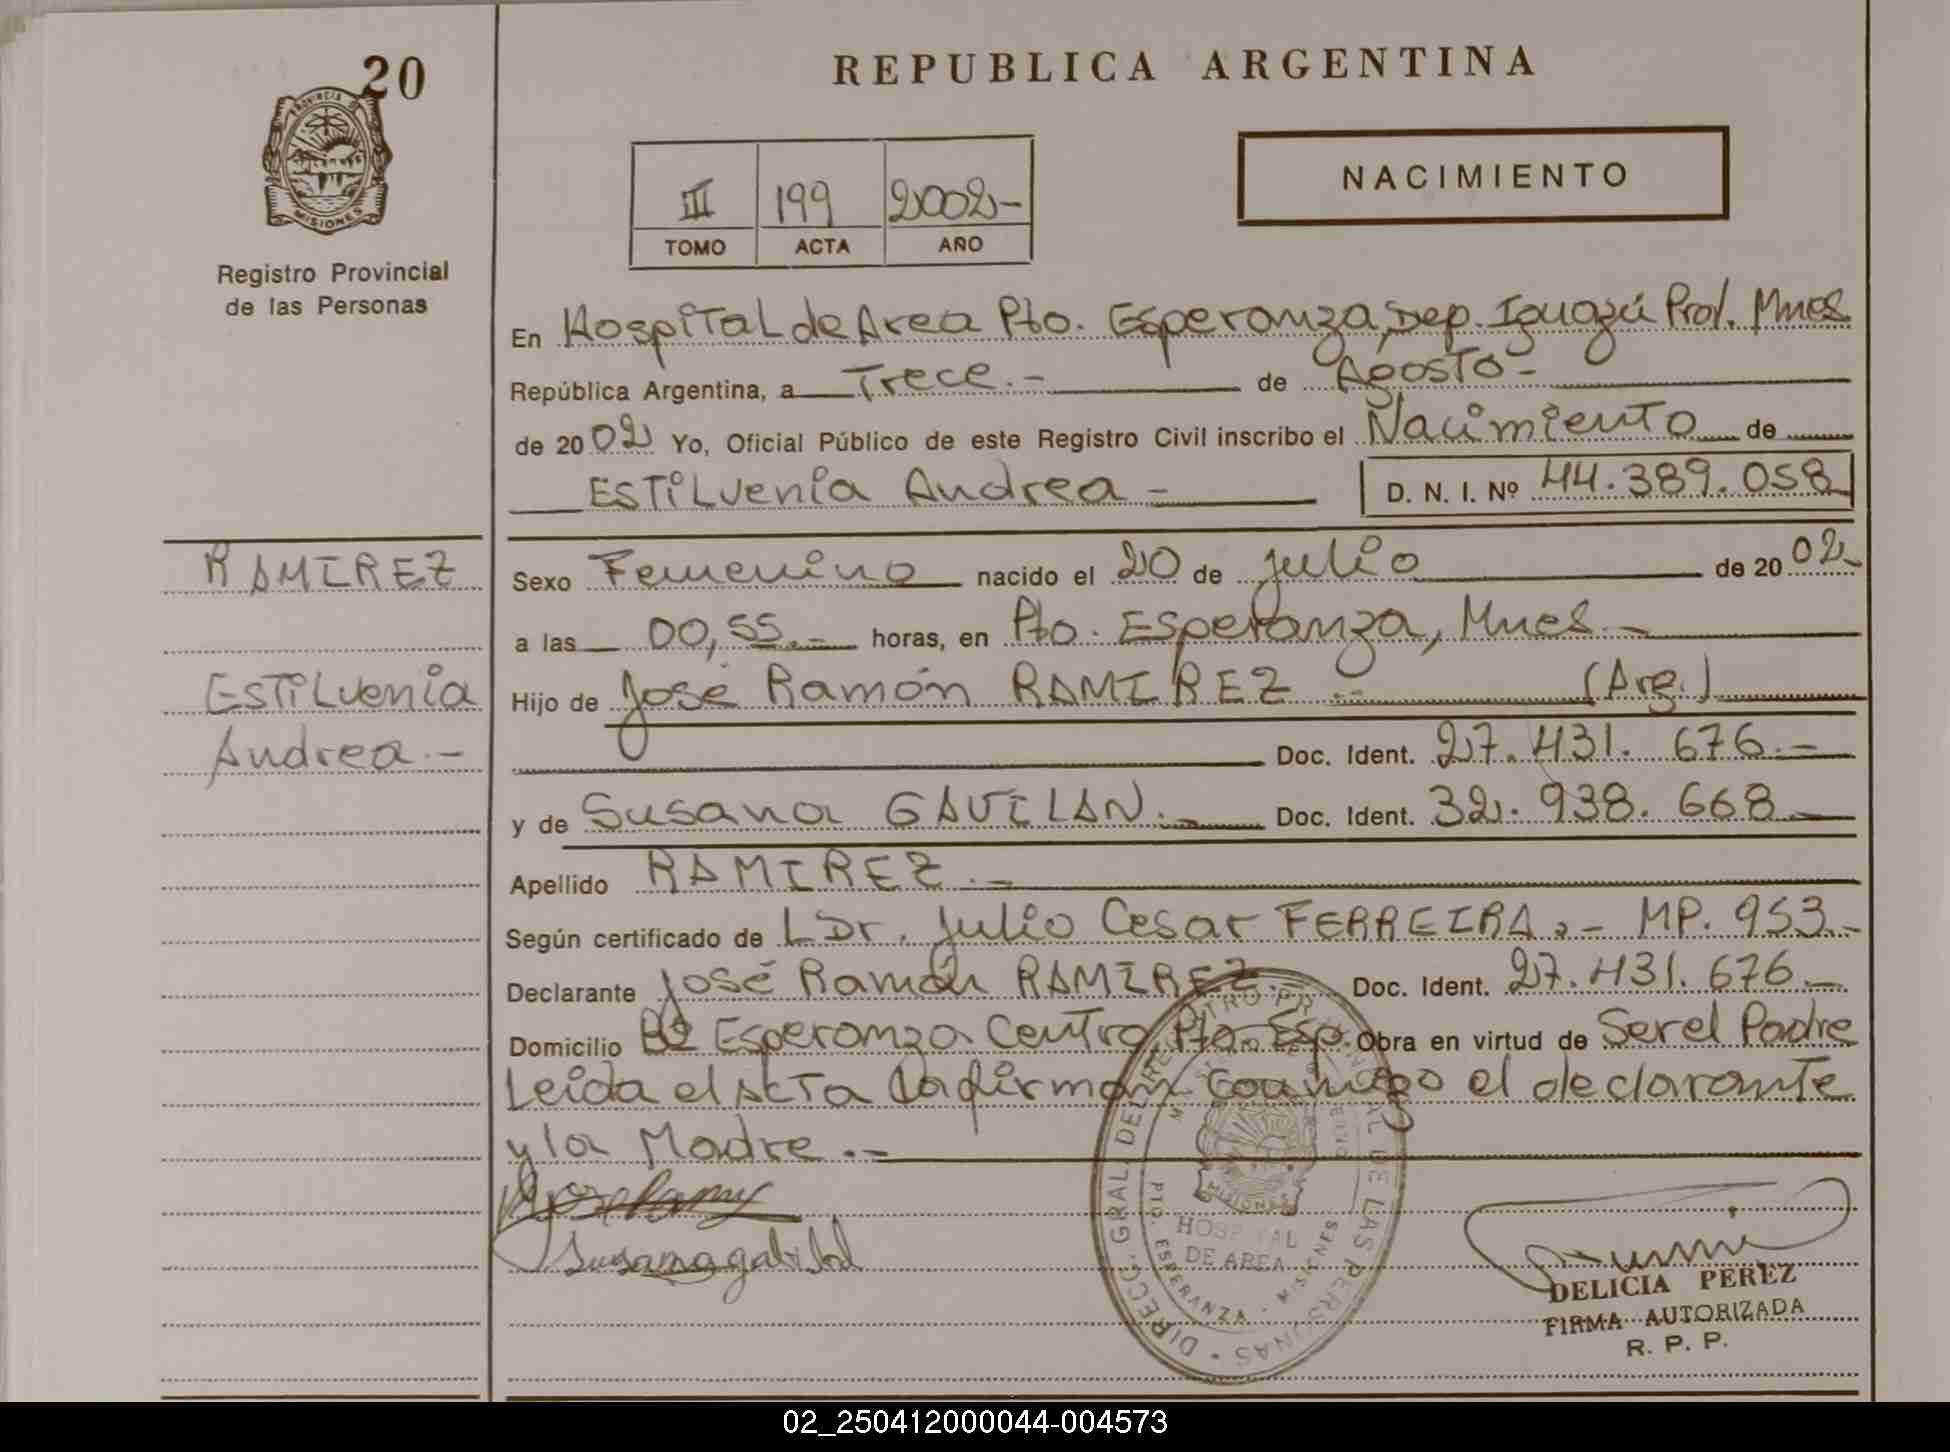 20
PROVINCIA DE
MISIONES
Registro Provincial
de las Personas
REPUBLICA ARGENTINA
III 199 2002-
TOMO ACTA AÑO
NACIMIENTO
En Hospital de Area Pto. Esperanza, Dep. Iguazú Prov. Mnes
República Argentina, a Trece.- de Agosto-
de 2002 Yo, Oficial Público de este Registro Civil inscribo el Nacimiento de
ESTILvenia Andrea - D. N. I. Nº 44.389.058
RAMIREZ
Estilvenia
Andrea.-
Sexo Femenino nacido el 20 de julio de 2002
a las 00,55.- horas, en Pto. Esperanza, Mnes.-
Hijo de José Ramón RAMIREZ.- (Arg.)
Doc. Ident. 27.431.676.-
y de Susana GAVILAN.- Doc. Ident. 32.938.668-
Apellido RAMIREZ.-
Según certificado de L Dr. Julio Cesar FERREIRA.- MP. 953.-
Declarante José Ramón RAMIREZ.- Doc. Ident. 27.431.676.-
Domicilio Bº Esperanza Centro, Pto. Esp. Obra en virtud de Ser el Padre
Leida el ACTA la firman conmigo el declarante
y la Madre.-
DIRECC. GRAL. DEL REGISTRO PROVINCIAL DE LAS PERSONAS
MISIONES
HOSPITAL
DE AREA
PTO. ESPERANZA - MISIONES
Susana
DELICIA PEREZ
FIRMA AUTORIZADA
R. P. P.
02_250412000044-004573